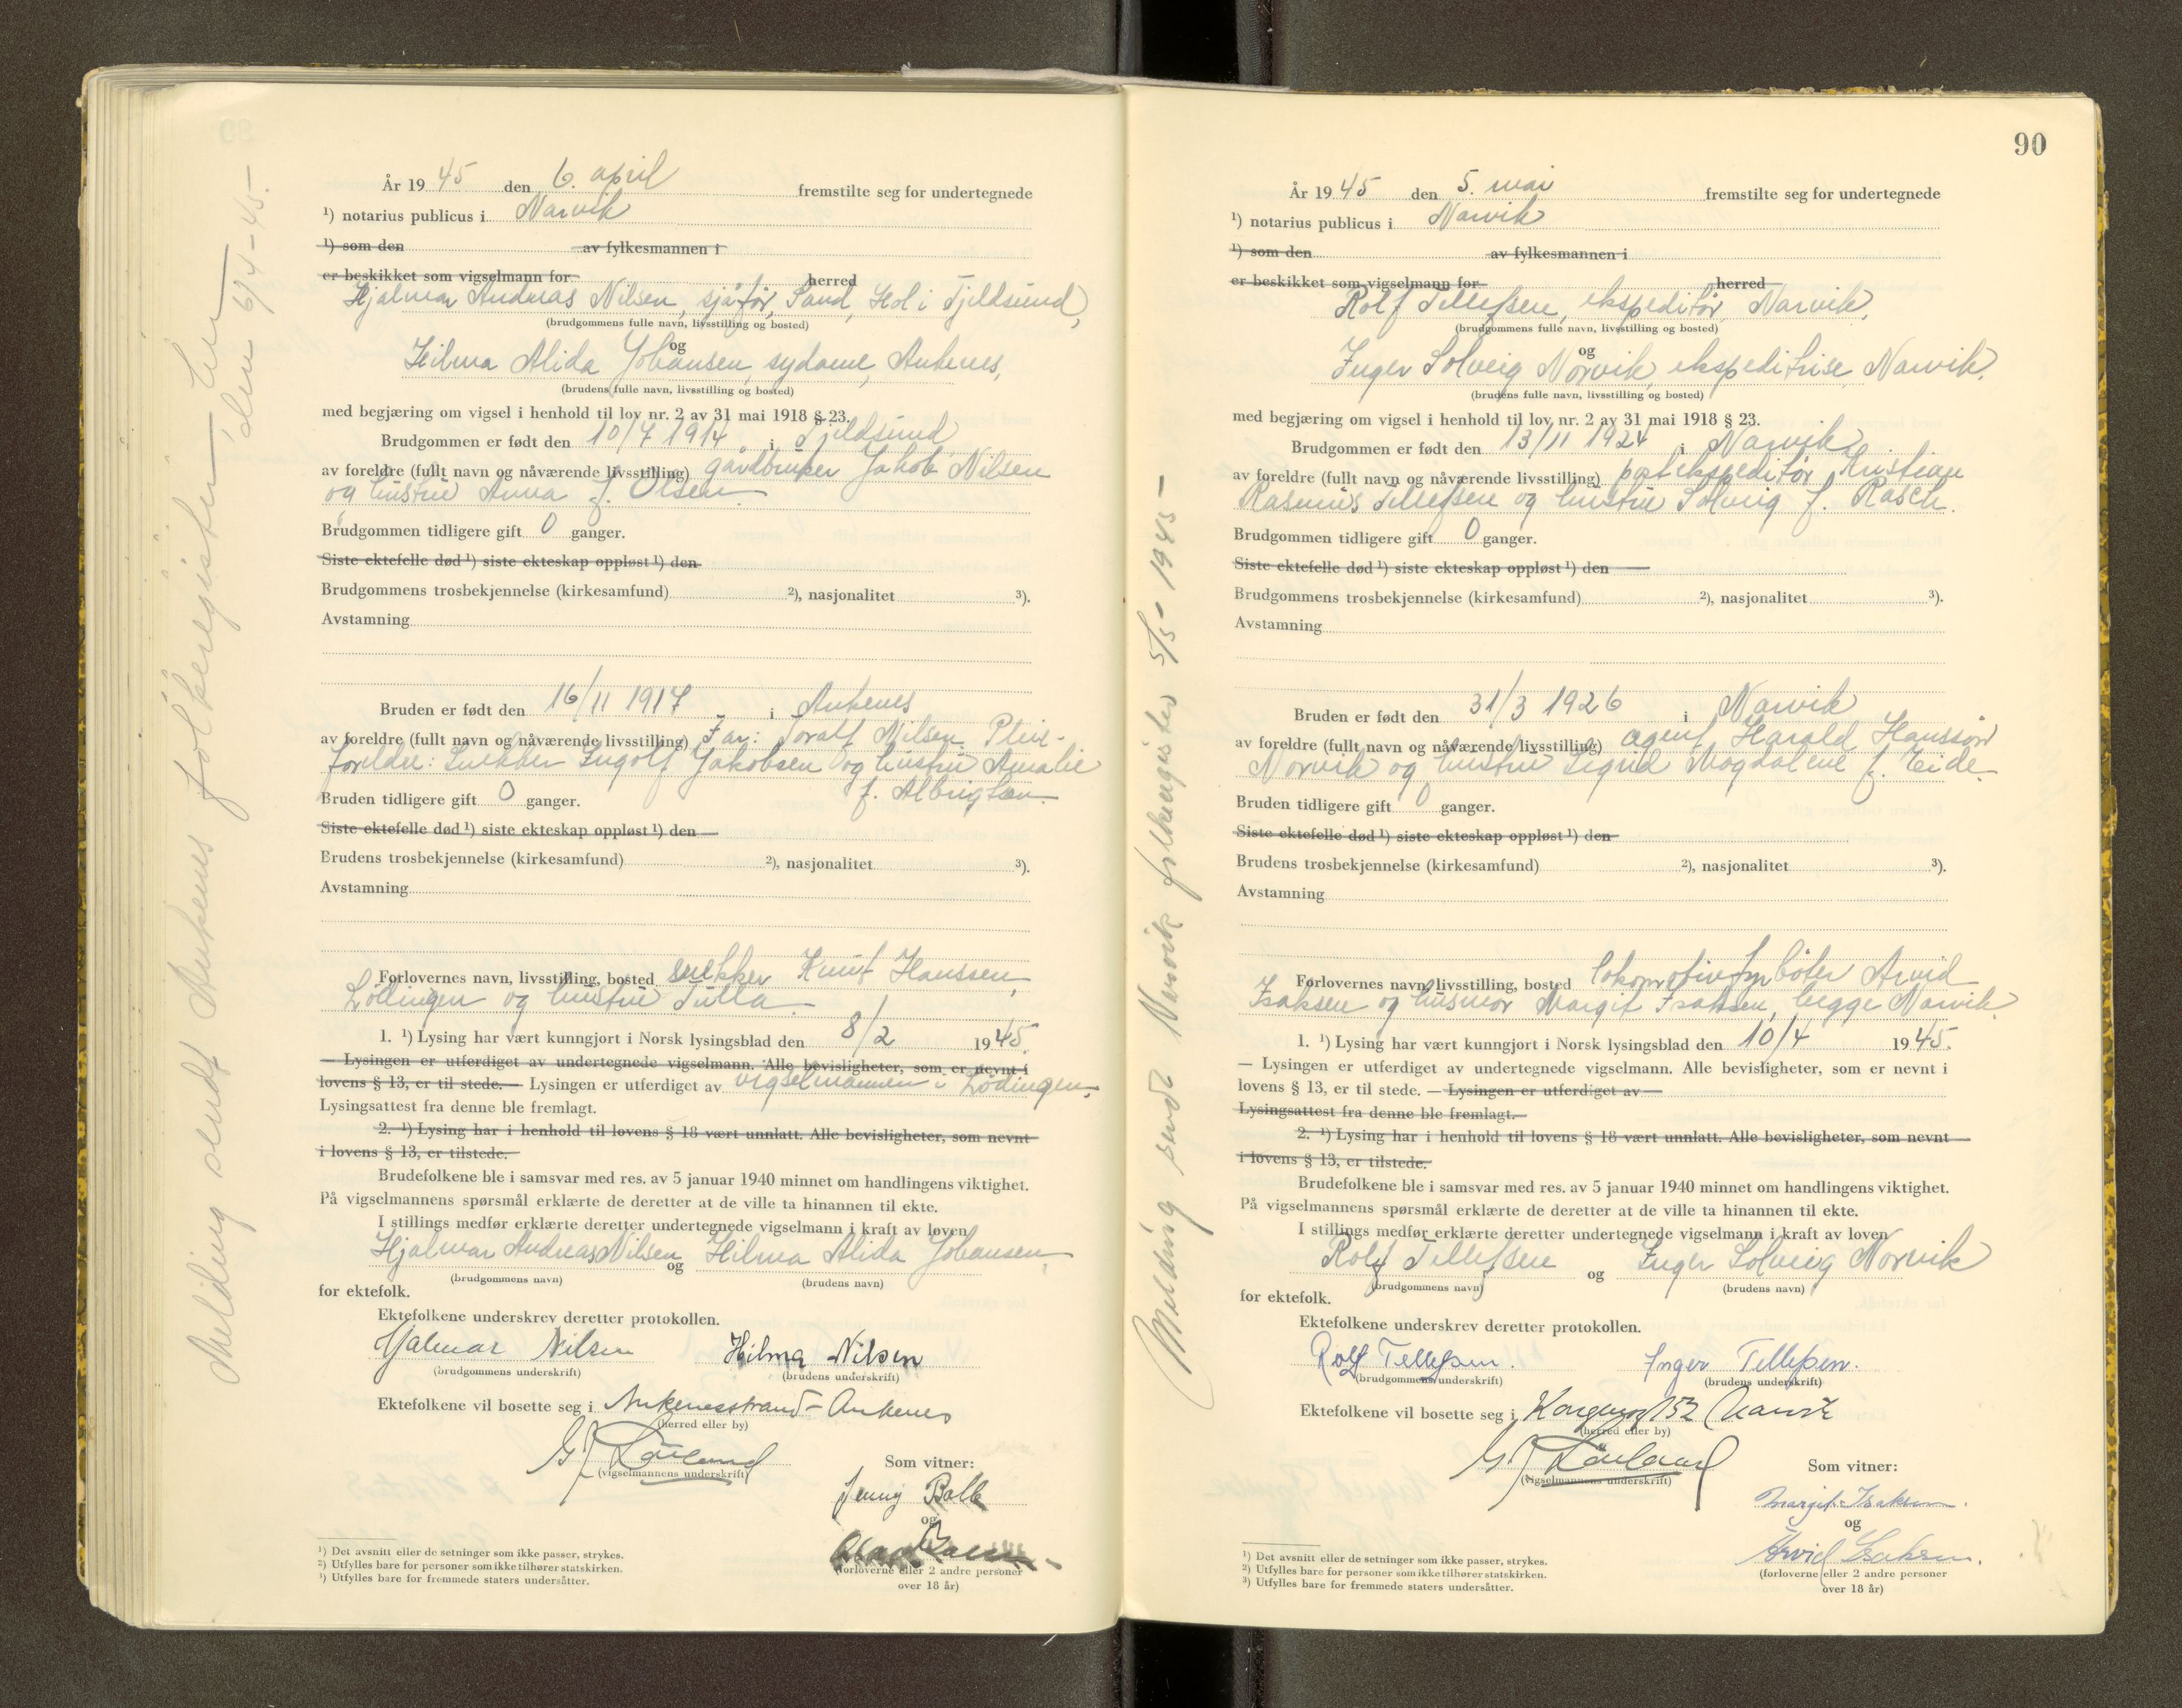 År 1945 den 6. april fremstilte seg for undertegnede
¹) notarius publicus i Narvik
¹) som den av fylkesmannen i
er beskikket som vigselmann for herred
Hjalmar Andreas Nilsen, sjåfør, Sand, Hol i Tjeldsund,
(brudgommens fulle navn, livsstilling og bosted)
og
Hilma Alida Johansen, sydame, Ankenes,
(brudens fulle navn, livsstilling og bosted)
med begjæring om vigsel i henhold til lov nr. 2 av 31 mai 1918 § 23.
Brudgommen er født den 10/7 1914 i Tjeldsund
av foreldre (fullt navn og nåværende livsstilling) gårdbruker Jakob Nilsen
og hustru Anna f. Olsen
Brudgommen tidligere gift 0 ganger.
Siste ektefelle død ¹) siste ekteskap oppløst ¹) den
Brudgommens trosbekjennelse (kirkesamfund) ²), nasjonalitet ³).
Avstamning
Bruden er født den 16/11 1917 i Ankenes
av foreldre (fullt navn og nåværende livsstilling) Far: Toralf Nilsen. Pleie-
foreldre: Snekker Ingolf Jakobsen og hustru Amalie
f. Albrigtsen
Bruden tidligere gift 0 ganger.
Siste ektefelle død ¹) siste ekteskap oppløst ¹) den
Brudens trosbekjennelse (kirkesamfund) ²), nasjonalitet ³).
Avstamning
Forlovernes navn, livsstilling, bosted snekker Knut Hanssen,
Lødingen og hustru Tulla
1. ¹) Lysing har vært kunngjort i Norsk lysingsblad den 8/2 1945.
— Lysingen er utferdiget av undertegnede vigselmann. Alle bevisligheter, som er nevnt i
lovens § 13, er til stede. — Lysingen er utferdiget av vigselmannen i Lødingen.
Lysingsattest fra denne ble fremlagt.
2. ¹) Lysing har i henhold til lovens § 18 vært unnlatt. Alle bevisligheter, som nevnt
i lovens § 13, er tilstede.
Brudefolkene ble i samsvar med res. av 5 januar 1940 minnet om handlingens viktighet.
På vigselmannens spørsmål erklærte de deretter at de ville ta hinannen til ekte.
I stillings medfør erklærte deretter undertegnede vigselmann i kraft av loven
Hjalmar Andreas Nilsen og Hilma Alida Johansen,
(brudgommens navn) (brudens navn)
for ektefolk.
Ektefolkene underskrev deretter protokollen.
Hjalmar Nilsen Hilma Nilsen
(brudgommens underskrift) (brudens underskrift)
Ektefolkene vil bosette seg i Ankenesstrand - Ankenes
(herred eller by)
(vigselmannens underskrift)
Som vitner:
Jenny Balle
og
(forloverne eller 2 andre personer
over 18 år)
¹) Det avsnitt eller de setninger som ikke passer, strykes.
²) Utfylles bare for personer som ikke tilhører statskirken.
³) Utfylles bare for fremmede staters undersåtter.
Melding sendt Ankenes folkeregister
den 6/4-45.-
90
År 1945 den 5. mai fremstilte seg for undertegnede
¹) notarius publicus i Narvik
¹) som den av fylkesmannen i
er beskikket som vigselmann for herred
Rolf Tellefsen, ekspeditør, Narvik,
(brudgommens fulle navn, livsstilling og bosted)
og
Inger Solveig Norvik, ekspeditrise, Narvik.
(brudens fulle navn, livsstilling og bosted)
med begjæring om vigsel i henhold til lov nr. 2 av 31 mai 1918 § 23.
Brudgommen er født den 13/11 1924 i Narvik
av foreldre (fullt navn og nåværende livsstilling) postekspeditør Kristian
Rasmus Tellefsen og hustru Solveig f. Rasch.
Brudgommen tidligere gift 0 ganger.
Siste ektefelle død ¹) siste ekteskap oppløst ¹) den
Brudgommens trosbekjennelse (kirkesamfund) ²), nasjonalitet ³).
Avstamning
Bruden er født den 31/3 1926 i Narvik
av foreldre (fullt navn og nåværende livsstilling) agent Harald Hanssøn
Norvik og hustru Sigrid Magdalene f. Eide.
Bruden tidligere gift 0 ganger.
Siste ektefelle død ¹) siste ekteskap oppløst ¹) den
Brudens trosbekjennelse (kirkesamfund) ²), nasjonalitet ³).
Avstamning
Forlovernes navn, livsstilling, bosted lokomotivfyrbøter Arvid
Isaksen og husmor Margit Isaksen, begge Narvik.
1. ¹) Lysing har vært kunngjort i Norsk lysingsblad den 10/4 1945.
— Lysingen er utferdiget av undertegnede vigselmann. Alle bevisligheter, som er nevnt i
lovens § 13, er til stede. — Lysingen er utferdiget av
Lysingsattest fra denne ble fremlagt.
2. ¹) Lysing har i henhold til lovens § 18 vært unnlatt. Alle bevisligheter, som nevnt
i lovens § 13, er tilstede.
Brudefolkene ble i samsvar med res. av 5 januar 1940 minnet om handlingens viktighet.
På vigselmannens spørsmål erklærte de deretter at de ville ta hinannen til ekte.
I stillings medfør erklærte deretter undertegnede vigselmann i kraft av loven
Rolf Tellefsen og Inger Solveig Norvik
(brudgommens navn) (brudens navn)
for ektefolk.
Ektefolkene underskrev deretter protokollen.
Rolf Tellefsen. Inger Tellefsen.
(brudgommens underskrift) (brudens underskrift)
Ektefolkene vil bosette seg i Kongensgt 52 Narvik
(herred eller by)
(vigselmannens underskrift)
Som vitner:
Margit Isaksen.
og
Arvid Isaksen.
(forloverne eller 2 andre personer
over 18 år)
¹) Det avsnitt eller de setninger som ikke passer, strykes.
²) Utfylles bare for personer som ikke tilhører statskirken.
³) Utfylles bare for fremmede staters undersåtter.
Melding sendt Narvik folkeregister 5/5-1945-